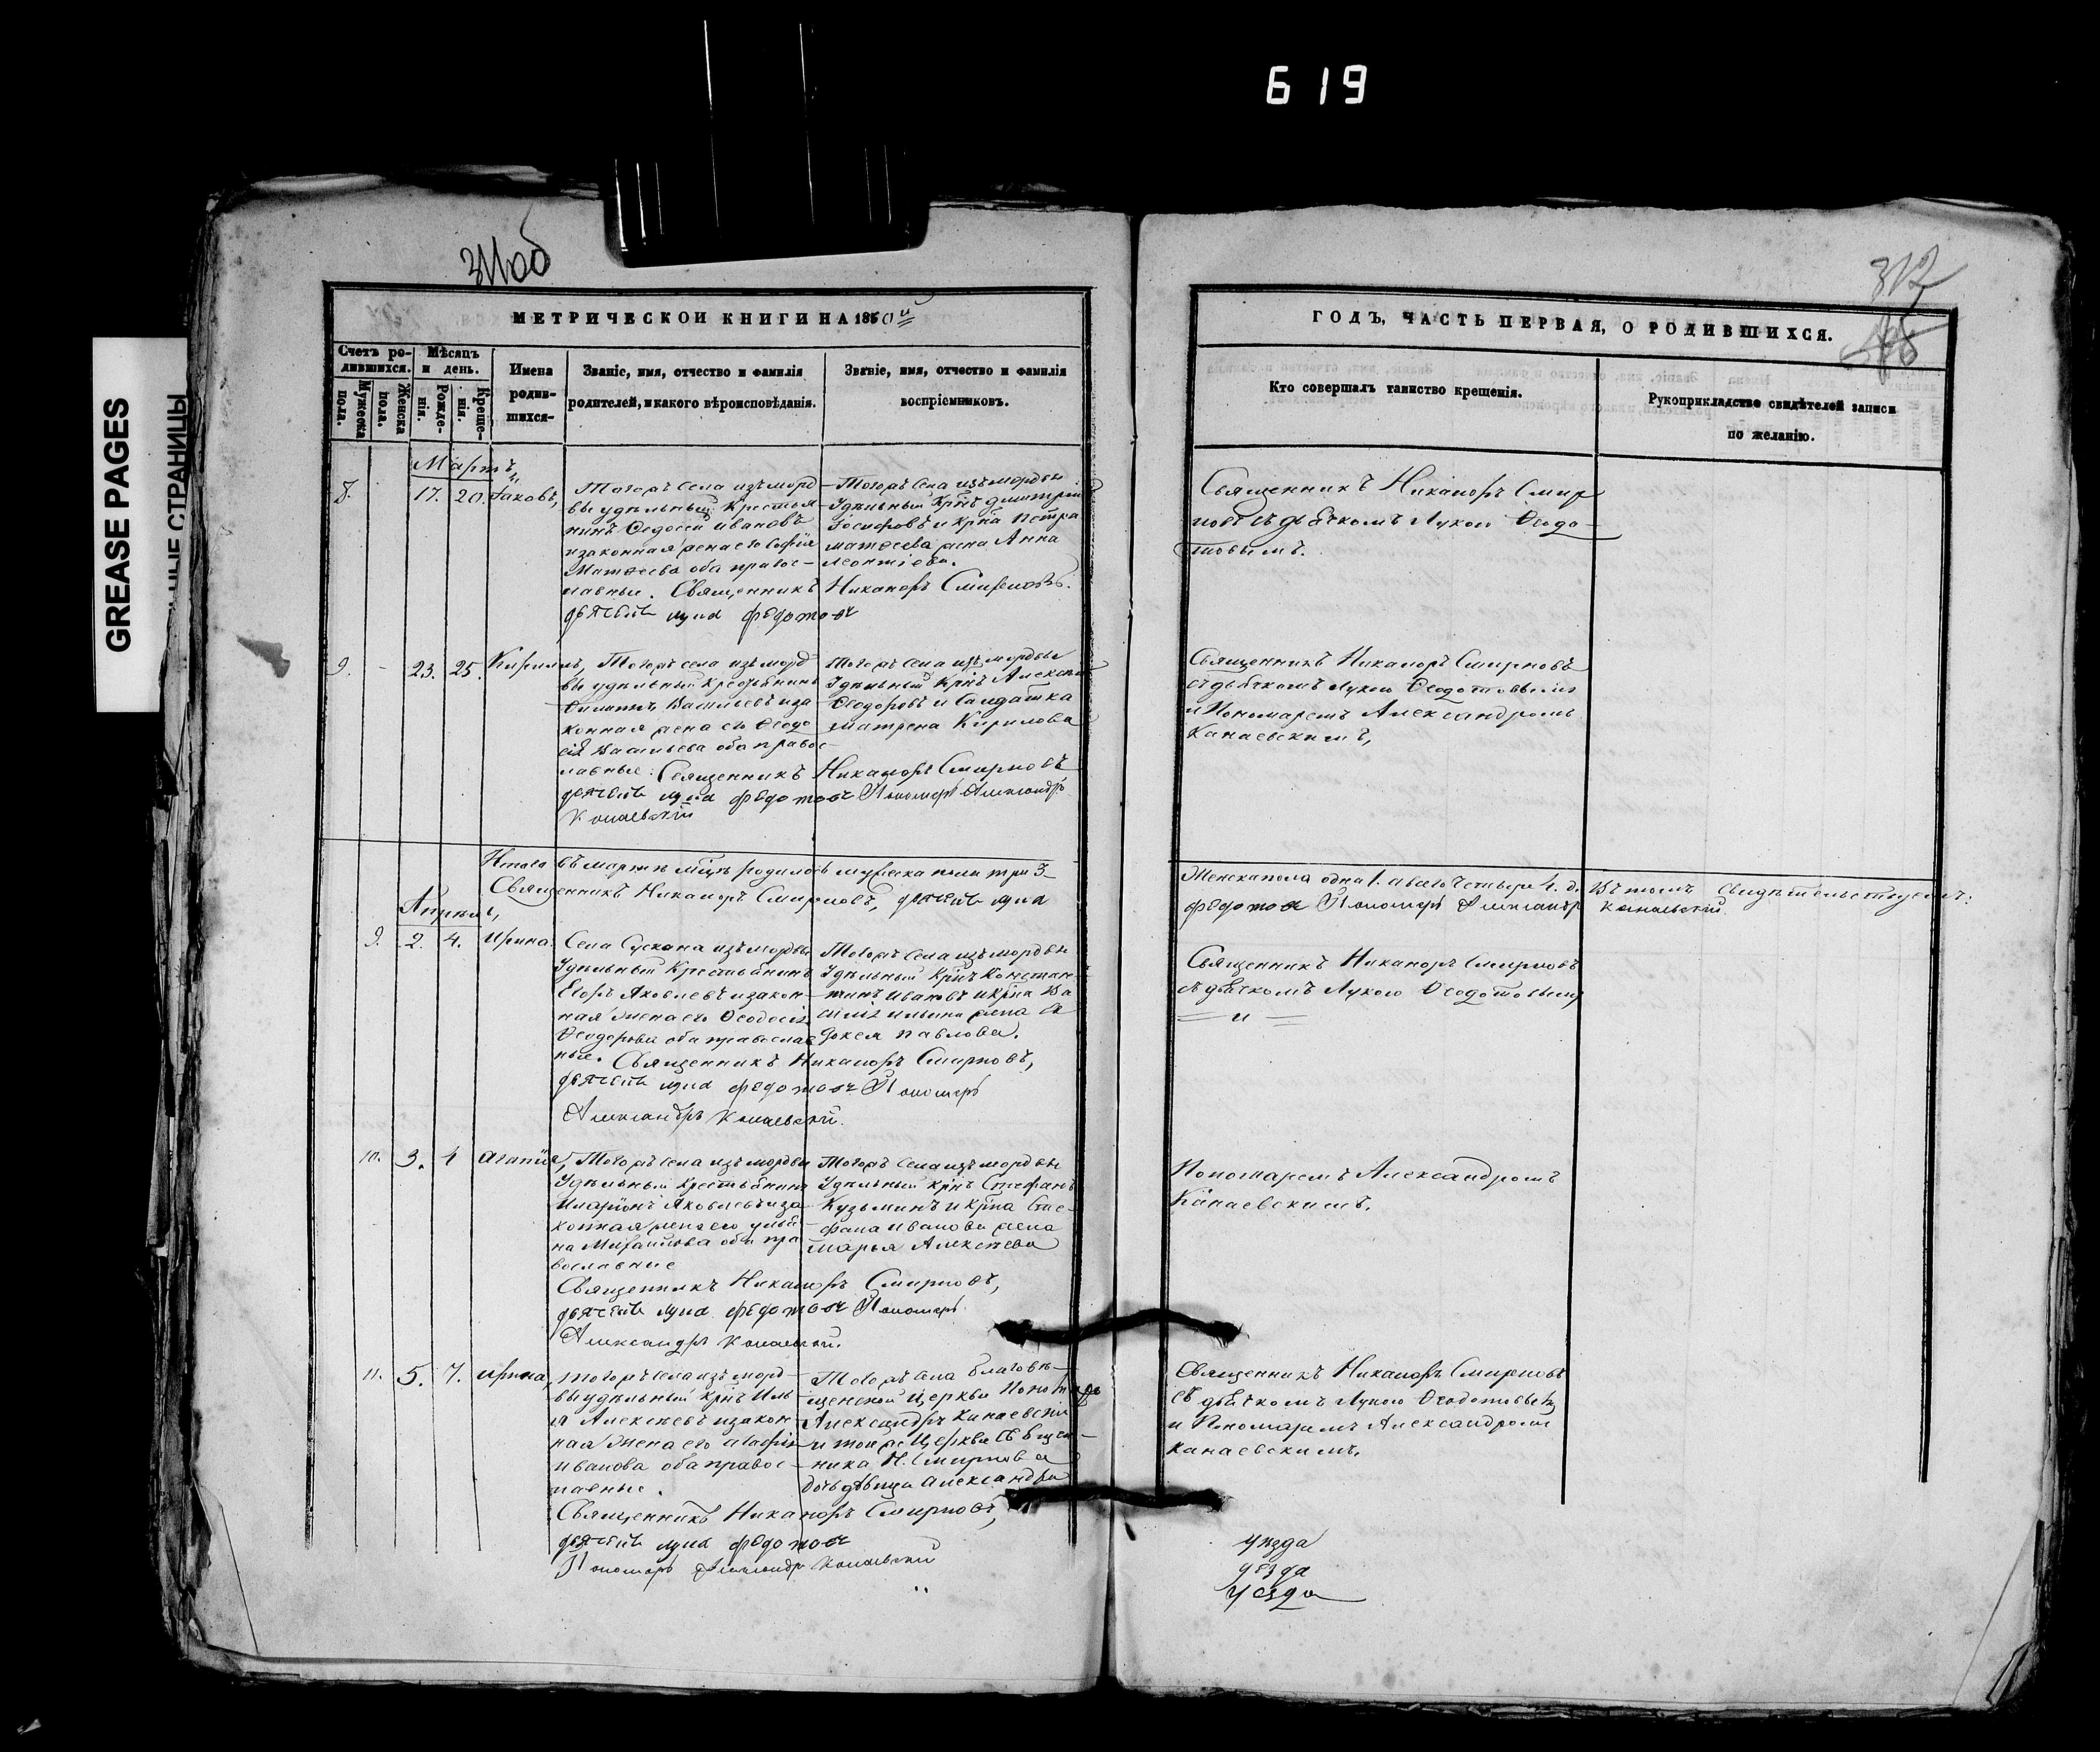 619
GREASE PAGES
НЫЕ СТРАНИЦЫ
311об
МЕТРИЧЕСКОЙ КНИГИ НА 1850й
Счетъ ро-
дившихся.
Мужеска
пола.
Женска
пола.
Мѣсяцъ
и день.
Рожде-
нія.
Креще-
нія.
Имена
родив-
шихся-
Званіе, имя, отчество и фамилія
родителей, и какого вѣроисповѣданія.
Званіе, имя, отчество и фамилія
воспріемниковъ.
Мартъ,
8.
17.
20.
Іаковъ,
Тогожъ села изъ морд
вы удѣльный Крестья
нинъ Ѳедосей Ивановъ
и законная жена его Софія
Матѳеева оба правос-
лавные. Священникъ Никаноръ Смирновъ.
дьячекъ лука федотовъ
Тогожъ села изъ мордвы
Удѣльный Крнъ Дмитрій
Іосифовъ и крна Петра
Матѳеева жена Анна
Леонтіева.
9.
-
23.
25.
Кириллъ,
Тогожъ села изъ морд
вы удѣльный крестьянинъ
Филиппъ Васильевъ и за
конная жена его Ѳеодо
сія Васильева оба правос-
лавные: Священникъ Никаноръ Смирновъ
дьячекъ лука федотовъ Пономарь Александръ
Канаевскій
Тогожъ села изъ мордвы
Удѣльный Крнъ Алексѣй
Ѳеодоровъ и Солдатка
Матрена Кирилова
Итого въ мартѣ мцѣ родилось мужеска пола три 3
Священникъ Никаноръ Смирновъ, дьячекъ лука
Апрѣль,
9.
2.
4.
Ирина.
Села Сускана изъ мордвы
Удѣльный Крестьянинъ
Егоръ Яковлевъ и закон-
ная жена его Ѳеодосія
Ѳеодорова оба православ
ные. Священникъ Никаноръ Смирновъ,
дьячекъ лука федотовъ Пономарь
Александръ Канаевскій.
Тогожъ села изъ мордвы
Удѣльный Крнъ Констан-
тинъ Ивановъ и крна Ва
силія Ильина жена Ев
докея Павлова.
10.
3.
4
Агапія,
Тогожъ села изъ мордвы
Удѣльный Крестьянинъ
Иларіонъ Яковлевъ и за-
конная жена его улья-
на Михайлова оба пра
вославные
Священникъ Никаноръ Смирновъ,
дьячекъ лука федотовъ Пономарь
Александръ Канаевскій.
Тогожъ села изъ мордвы
Удѣльный крнъ Стефанъ
Кузьминъ и крна Сте-
фана Иванова жена
Марья Алексѣева
11.
5.
7.
Ирина,
Тогожъ села изъ морд-
вы удѣльный крнъ Иль
я Алексѣевъ и закон-
ная жена его Агафія
Иванова оба правос-
лавные.
Священникъ Никаноръ Смирновъ,
дьячекъ лука федотовъ
Пономарь Александръ Канаевскій
Тогожъ села Благовѣ-
щенской церкви Пономарь
Александръ Канаевскій
и тойже церкви Священ-
ника Н. Смирнова
дочь дѣвица Александра
312
ГОДЪ, ЧАСТЬ ПЕРВАЯ, О РОДИВШИХСЯ.
Кто совершалъ таинство крещенія.
Рукоприкладство свидѣтелей записи
по желанію.
Священникъ Никаноръ Смир
новъ съ дьячкомъ Лукою Ѳедо-
товымъ.
Священникъ Никаноръ Смирновъ
съ дьячкомъ Лукою Ѳеодотовымъ
и Пономаремъ Александромъ
Канаевскимъ,
Женска пола одна 1. а всего четыре 4. д. Въ томъ свидѣтельствуемъ:
федотовъ Пономарь Александръ Канаевскій.
Священникъ Никаноръ Смирновъ
съ дьячкомъ Лукою Ѳеодотовымъ
= и =
Пономаремъ Александромъ
Канаевскимъ.
Священникъ Никаноръ Смирновъ
съ дьячкомъ Лукою Ѳеодотовымъ
и Пономаремъ Александромъ
Канаевскимъ.
уѣзда
уезда
уезда